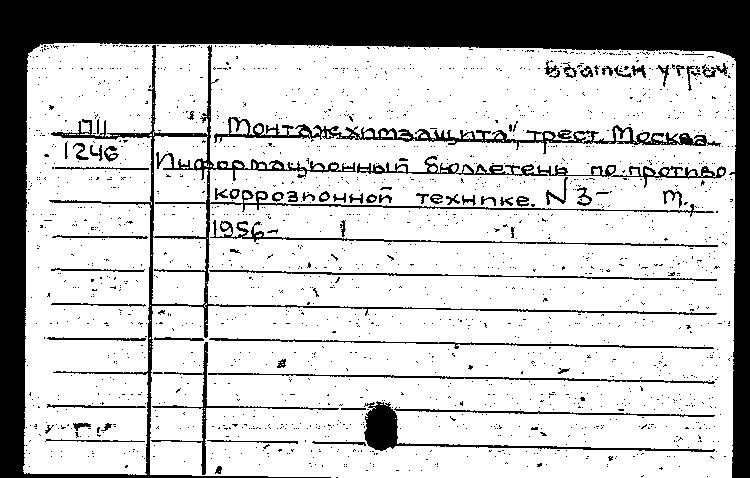 взамен утрач.
П11
1246
„Монтажхимзащита", трест. Москва.
Информационный бюллетень по противо-
коррозионной технике. N 3- М.,
1956-